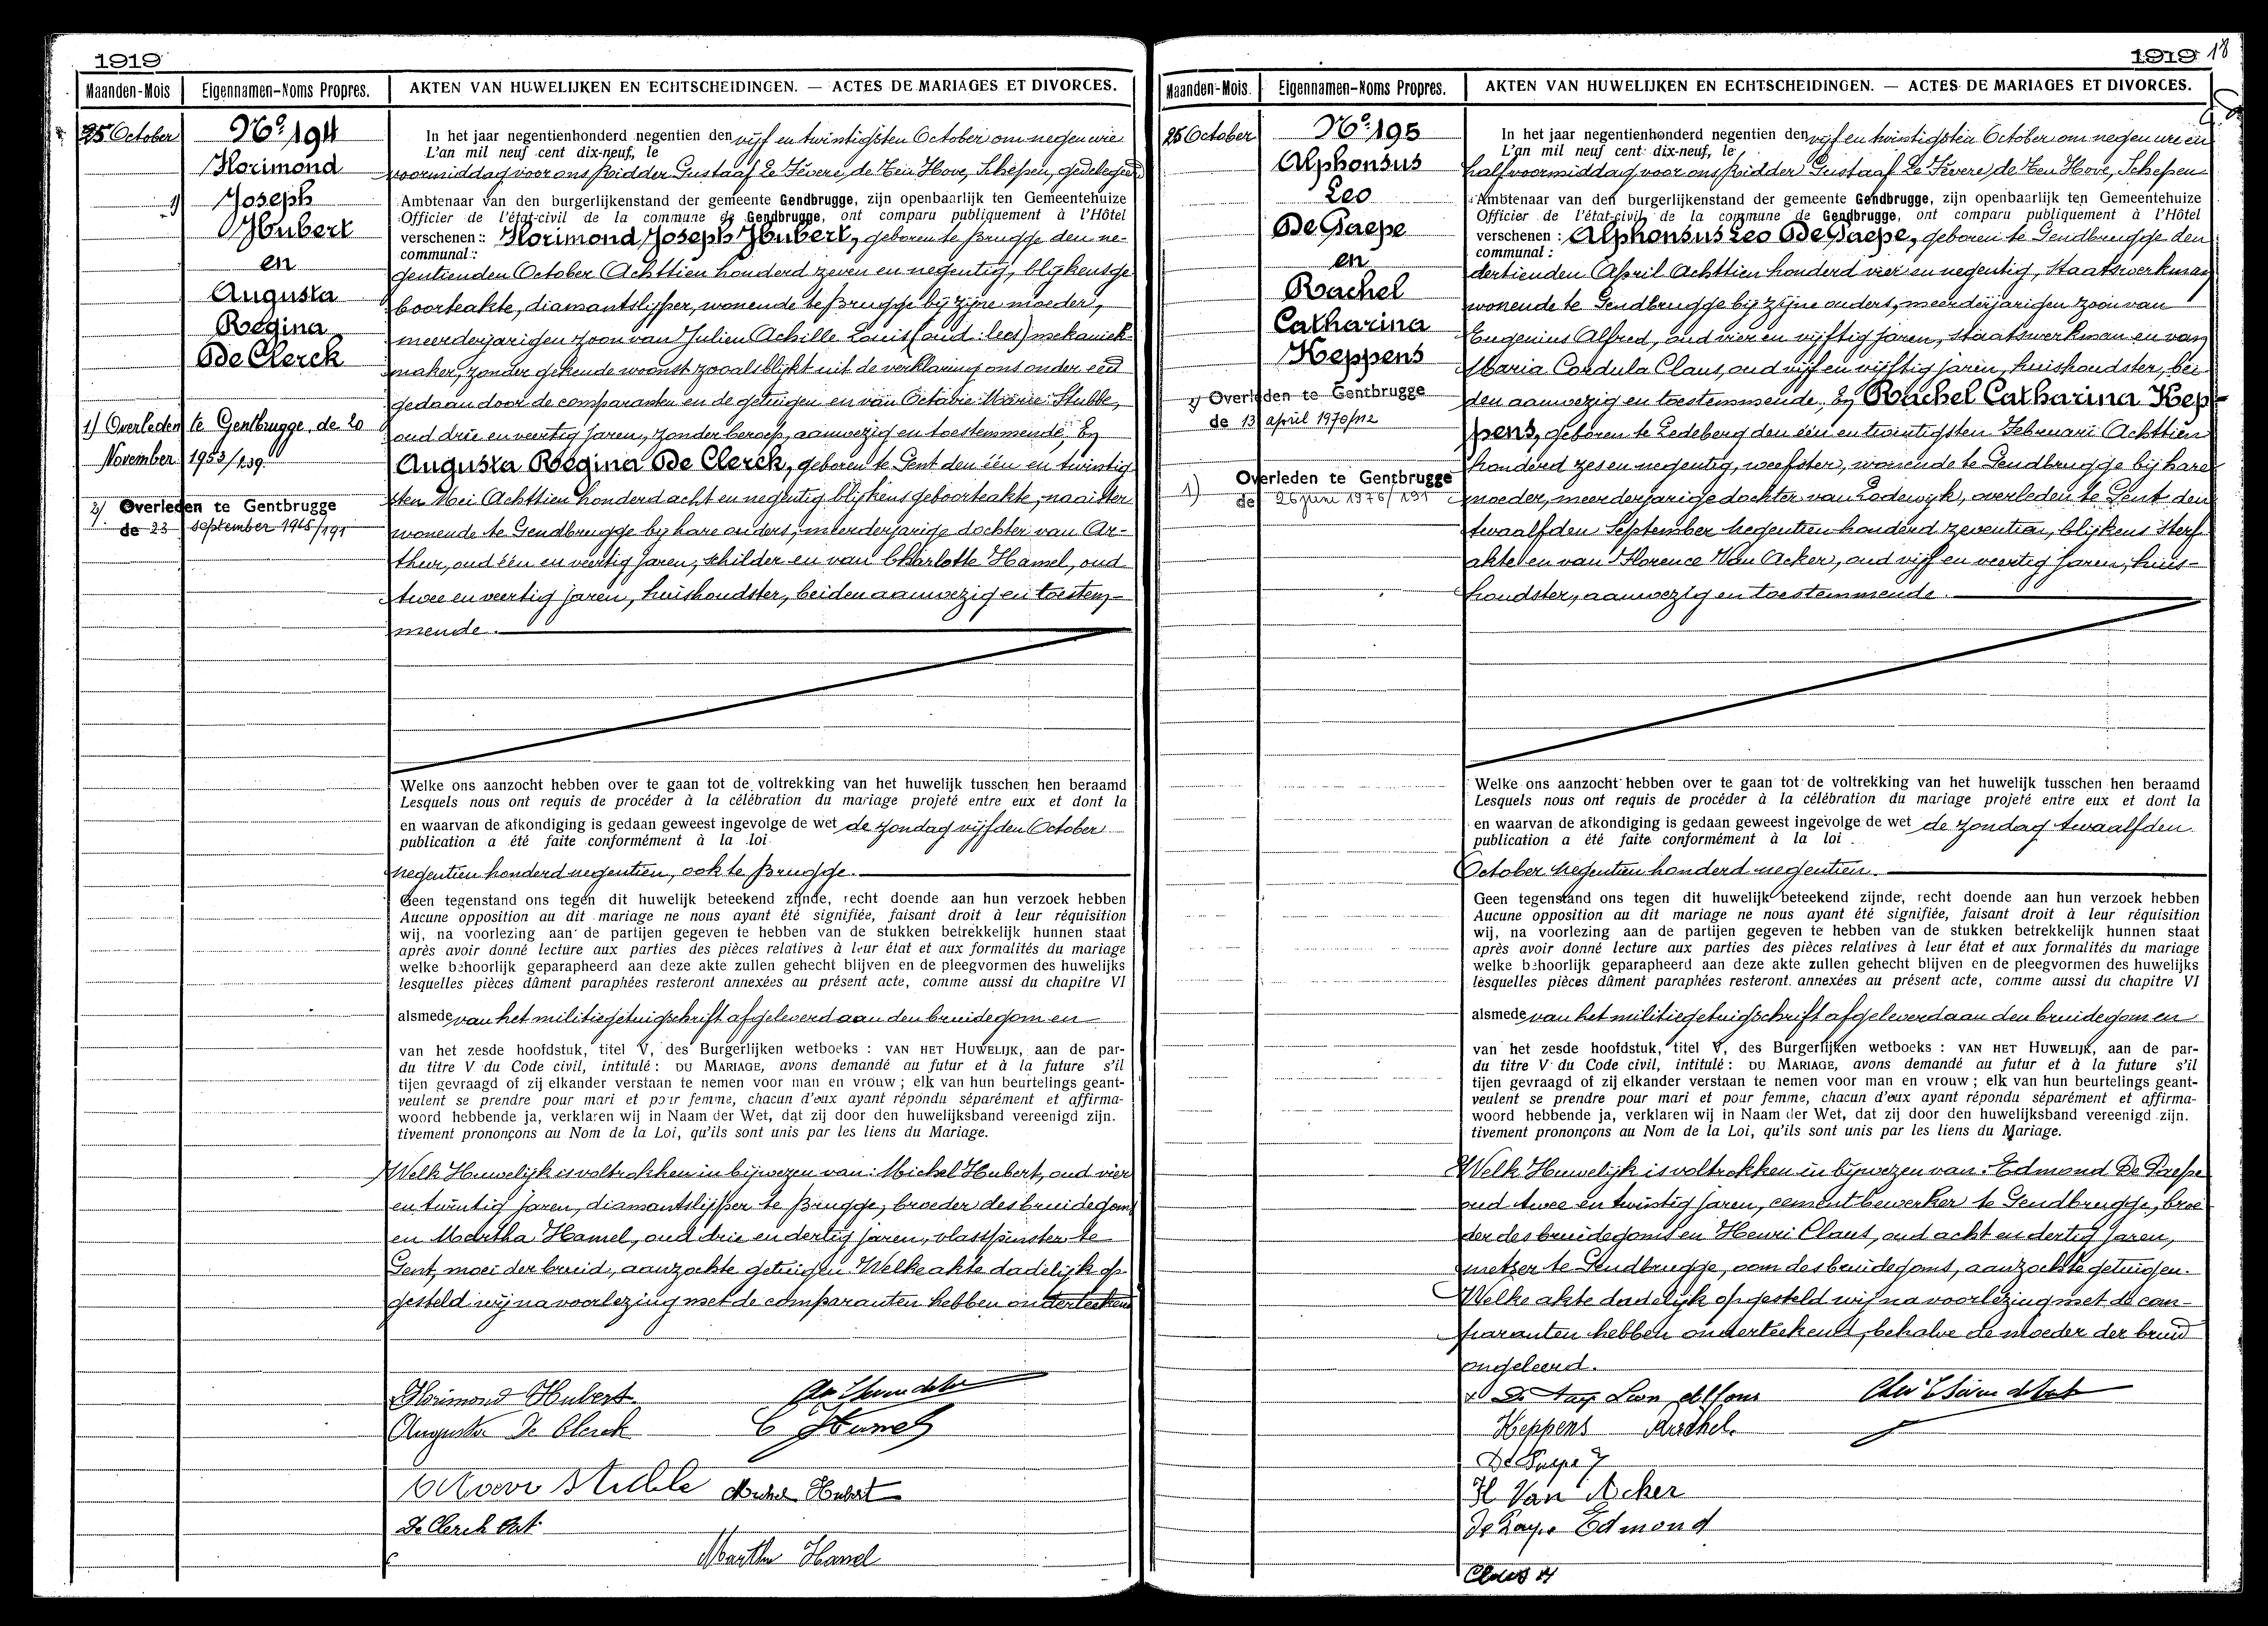 1919
Maanden-Mois
Eigennamen-Noms Propres.
AKTEN VAN HUWELIJKEN EN ECHTSCHEIDINGEN. — ACTES DE MARIAGES ET DIVORCES.
25 October
No. 194
Florimond
Joseph
Hubert
en
Augusta
Regina
De Clerck
1) Overleden te Gentbrugge, de 20
November 1953/239.
2) Overleden te Gentbrugge
de 23 september 1965/191
In het jaar negentienhonderd negentien den vijf en twintigsten October om negen ure
L'an mil neuf cent dix-neuf, le
voormiddag voor ons Ridder Gustaaf Le Févere, de Ten Hove, Schepen, gedelegeerd
Ambtenaar van den burgerlijkenstand der gemeente Gendbrugge, zijn openbaarlijk ten Gemeentehuize
Officier de l'état-civil de la commune de Gendbrugge, ont comparu publiquement à l'Hôtel
verschenen : Florimond Joseph Hubert, geboren te Brugge den ne-
communal :
gentienden October Achttien honderd zeven en negentig, blijkens ge
boorteakte, diamantslijper, wonende te Brugge bij zijne moeder,
meerderjarigen zoon van Julien Achille Louis (oud: lees) mekaniek-
maker, zonder gekende woonst zooals blijkt uit de verklaring ons onder eed
gedaan door de comparanten en de getuigen en van Octavie Marie Stubbe,
oud drie en veertig jaren, zonder beroep, aanwezig en toestemmende. En
Augusta Regina De Clerck, geboren te Gent den één en twintig
sten Mei Achttien honderd acht en negentig blijkens geboorteakte, naaister
wonende te Gendbrugge bij hare ouders, meerderjarige dochter van Ar-
thur, oud één en veertig jaren, schilder en van Charlotte Hamel, oud
twee en veertig jaren, huishoudster, beiden aanwezig en toestem-
mende.
Welke ons aanzocht hebben over te gaan tot de voltrekking van het huwelijk tusschen hen beraamd
Lesquels nous ont requis de procéder à la célébration du mariage projeté entre eux et dont la
en waarvan de afkondiging is gedaan geweest ingevolge de wet de zondag vijfden October
publication a été faite conformément à la loi
negentien honderd negentien, ook te Brugge.
Geen tegenstand ons tegen dit huwelijk beteekend zijnde, recht doende aan hun verzoek hebben
Aucune opposition au dit mariage ne nous ayant été signifiée, faisant droit à leur réquisition
wij, na voorlezing aan de partijen gegeven te hebben van de stukken betrekkelijk hunnen staat
après avoir donné lecture aux parties des pièces relatives à leur état et aux formalités du mariage
welke behoorlijk geparapheerd aan deze akte zullen gehecht blijven en de pleegvormen des huwelijks
lesquelles pièces dûment paraphées resteront annexées au présent acte, comme aussi du chapitre VI
alsmede van het militiegetuigschrift afgeleverd aan den bruidegom en
van het zesde hoofdstuk, titel V, des Burgerlijken wetboeks : VAN HET HUWELIJK, aan de par-
du titre V du Code civil, intitulé : DU MARIAGE, avons demandé au futur et à la future s'il
tijen gevraagd of zij elkander verstaan te nemen voor man en vrouw ; elk van hun beurtelings geant-
veulent se prendre pour mari et pour femme, chacun d'eux ayant répondu séparément et affirma-
woord hebbende ja, verklaren wij in Naam der Wet, dat zij door den huwelijksband vereenigd zijn.
tivement prononçons au Nom de la Loi, qu'ils sont unis par les liens du Mariage.
Welk Huwelijk is voltrokken in bijwezen van: Michel Hubert, oud vier
en twintig jaren, diamantslijper te Brugge, broeder des bruidegoms
en Martha Hamel, oud drie en dertig jaren, vlasspinster te
Gent, moei der bruid, aanzochte getuigen. Welke akte dadelijk op-
gesteld wij na voorlezing met de comparanten hebben onderteekend
Florimond Hubert.
Augusta De Clerck
C Hamel
Stubbe
Michel Hubert
De Clerck Art
Martha Hamel
1919
18
Maanden-Mois.
Eigennamen-Noms Propres.
AKTEN VAN HUWELIJKEN EN ECHTSCHEIDINGEN. — ACTES DE MARIAGES ET DIVORCES.
25 October
No. 195
Alphonsus
Leo
De Paepe
en
Rachel
Catharina
Keppens
2) Overleden te Gentbrugge
de 13 april 1970/112
1) Overleden te Gentbrugge
de 26 juni 1976/191
In het jaar negentienhonderd negentien den vijf en twintigsten October om negen ure en
L'an mil neuf cent dix-neuf, le
half voormiddag voor ons Ridder Gustaaf Le Févere, de Ten Hove, Schepen
Ambtenaar van den burgerlijkenstand der gemeente Gendbrugge, zijn openbaarlijk ten Gemeentehuize
Officier de l'état-civil de la commune de Gendbrugge, ont comparu publiquement à l'Hôtel
verschenen : Alphonsus Leo De Paepe, geboren te Gendbrugge den
communal :
dertienden April Achttien honderd vier en negentig, staatswerkman
wonende te Gendbrugge bij zijne ouders, meerderjarigen zoon van
Eugenius Alfred, oud vier en vijftig jaren, staatswerkman en van
Maria Cordula Claus, oud vijf en vijftig jaren, huishoudster, bei-
den aanwezig en toestemmende. En Rachel Catharina Kep-
pens, geboren te Ledeberg den één en twintigsten Februari Achttien
honderd zes en negentig, weefster, wonende te Gendbrugge bij hare
moeder, meerderjarige dochter van Lodewijk, overleden te Gent den
twaalfden September negentien honderd zeventien, blijkens sterf-
akte en van Florence Van Acker, oud vijf en veertig jaren, huis-
houdster, aanwezig en toestemmende.
Welke ons aanzocht hebben over te gaan tot de voltrekking van het huwelijk tusschen hen beraamd
Lesquels nous ont requis de procéder à la célébration du mariage projeté entre eux et dont la
en waarvan de afkondiging is gedaan geweest ingevolge de wet de zondag twaalfden
publication a été faite conformément à la loi
October negentien honderd negentien.
Geen tegenstand ons tegen dit huwelijk beteekend zijnde, recht doende aan hun verzoek hebben
Aucune opposition au dit mariage ne nous ayant été signifiée, faisant droit à leur réquisition
wij, na voorlezing aan de partijen gegeven te hebben van de stukken betrekkelijk hunnen staat
après avoir donné lecture aux parties des pièces relatives à leur état et aux formalités du mariage
welke behoorlijk geparapheerd aan deze akte zullen gehecht blijven en de pleegvormen des huwelijks
lesquelles pièces dûment paraphées resteront annexées au présent acte, comme aussi du chapitre VI
alsmede van het militiegetuigschrift afgeleverd aan den bruidegom en
van het zesde hoofdstuk, titel V, des Burgerlijken wetboeks : VAN HET HUWELIJK, aan de par-
du titre V du Code civil, intitulé : DU MARIAGE, avons demandé au futur et à la future s'il
tijen gevraagd of zij elkander verstaan te nemen voor man en vrouw ; elk van hun beurtelings geant-
veulent se prendre pour mari et pour femme, chacun d'eux ayant répondu séparément et affirma-
woord hebbende ja, verklaren wij in Naam der Wet, dat zij door den huwelijksband vereenigd zijn.
tivement prononçons au Nom de la Loi, qu'ils sont unis par les liens du Mariage.
Welk Huwelijk is voltrokken in bijwezen van: Edmond De Paepe
oud twee en twintig jaren, cementbewerker te Gendbrugge, broe
der des bruidegoms en Henri Claus, oud acht en dertig jaren,
metser te Gendbrugge, oom des bruidegoms, aanzochte getuigen.
Welke akte dadelijk opgesteld wij na voorlezing met de com-
paranten hebben onderteekend, behalve de moeder der bruid
ongeleerd.
Keppens Rachel.
Van Acker
De Paepe Edmond
Claus H